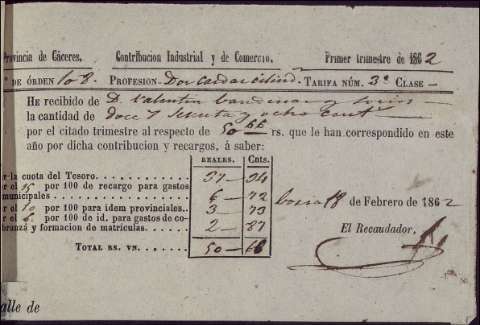 Provincia de Cáceres. Contribucion Industrial y de Comercio. Primer trimestre de 1862
º DE ÓRDEN 108. PROFESION- Dos cardas cilind. TARIFA NÚM. 3ª CLASE —
HE recibido de D. Valentin y
la cantidad de doce y setenta y ocho cent
por el citado trimestre al respecto de 50 66 rs. que le han correspondido en este
año por dicha contribucion y recargos, á saber:
REALES. Cnts.
or la cuota del Tesoro. 37 — 34
r el 15 por 100 de recargo para gastos
municipales 6 — 72
r el 10 por 100 para idem provinciales. 3 — 73
r el 6 por 100 de id. para gastos de co-
branza y formacion de matrículas. 2 — 87
TOTAL RS. VN. 50 — 66
18 de Febrero de 1862
El Recaudador,
alle de